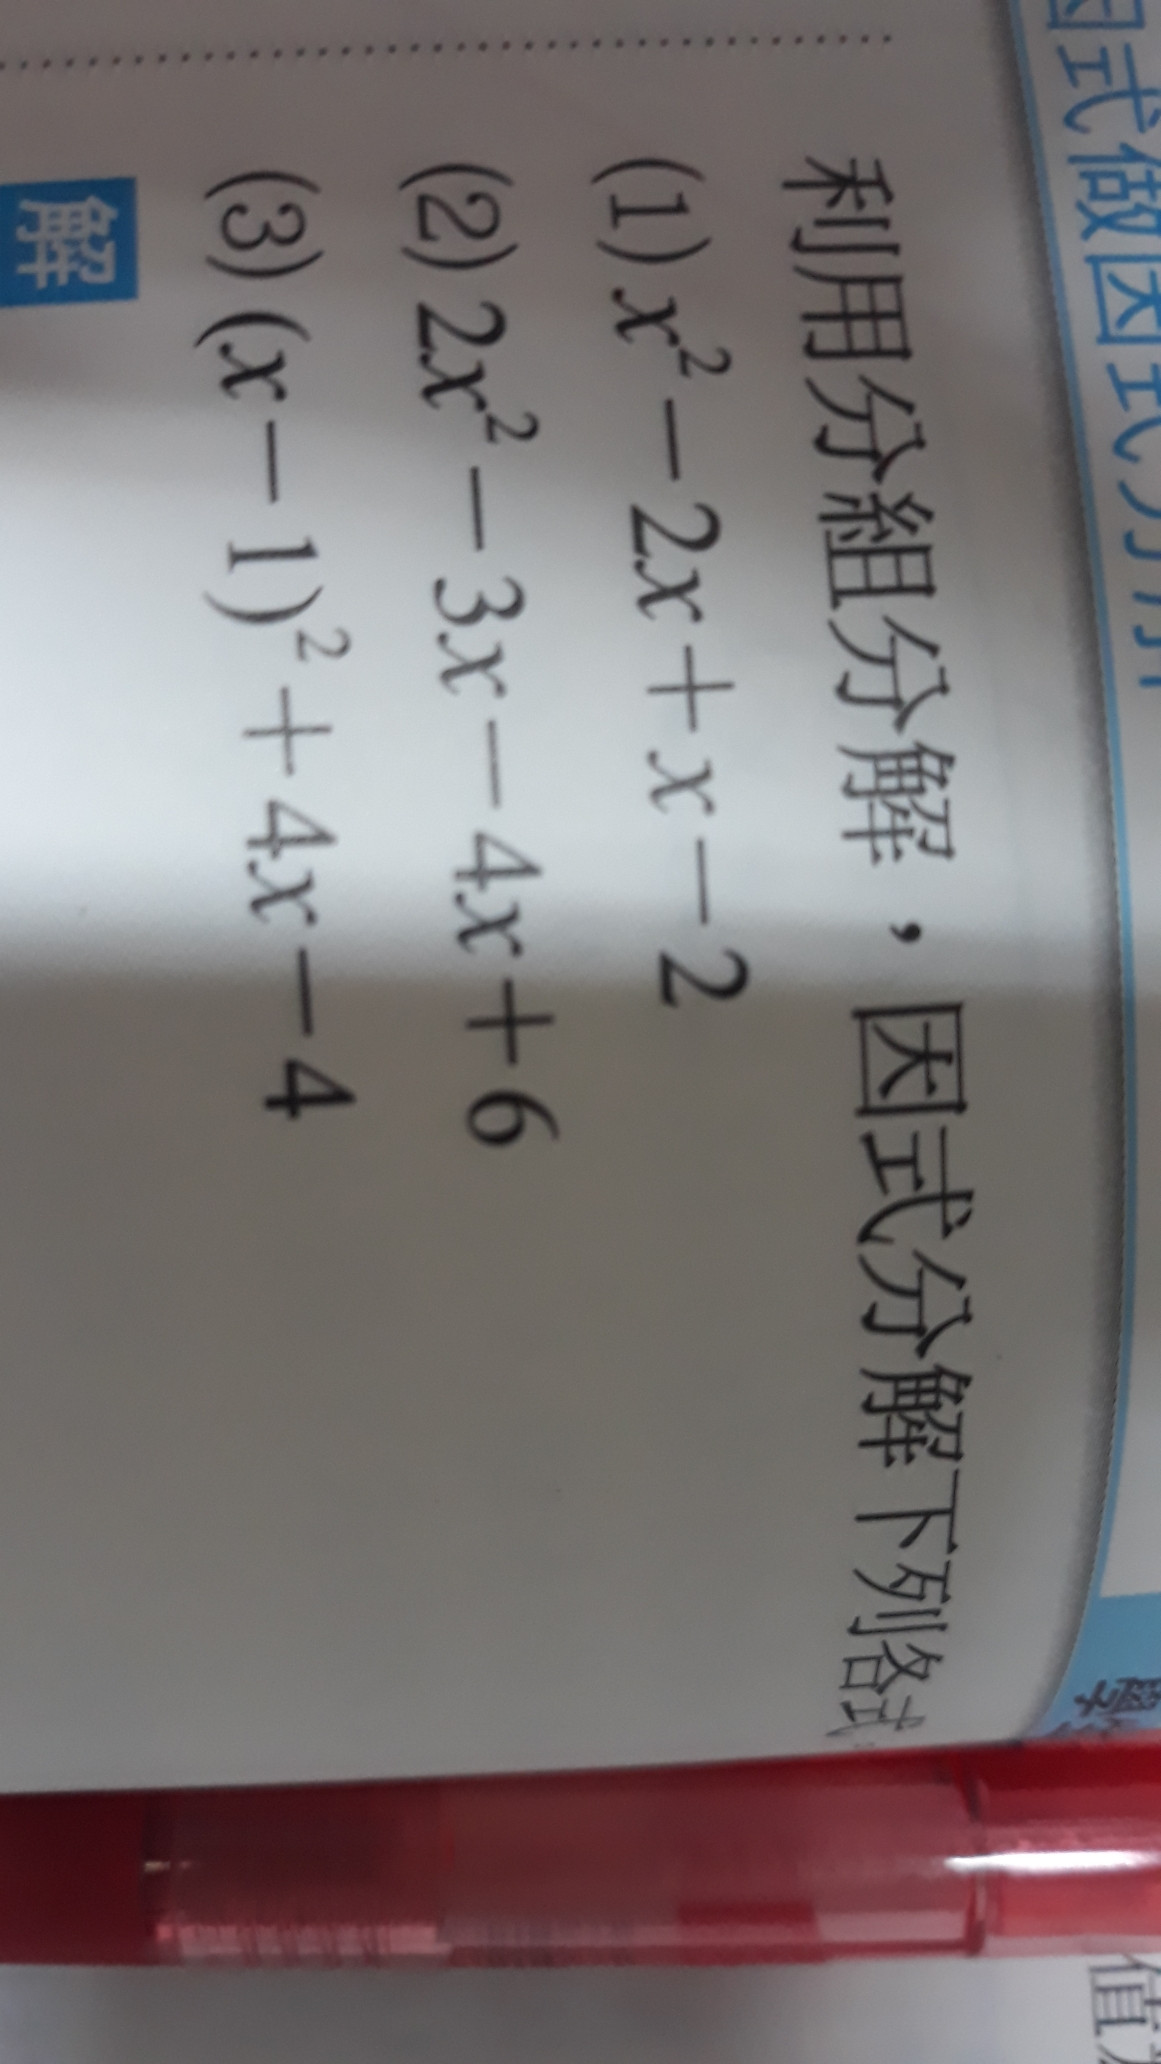 因式做因式分解
利用分組分解，因式分解下列各式
(1) x² − 2x + x − 2
(2) 2x² − 3x − 4x + 6
(3) (x − 1)² + 4x − 4
解
值